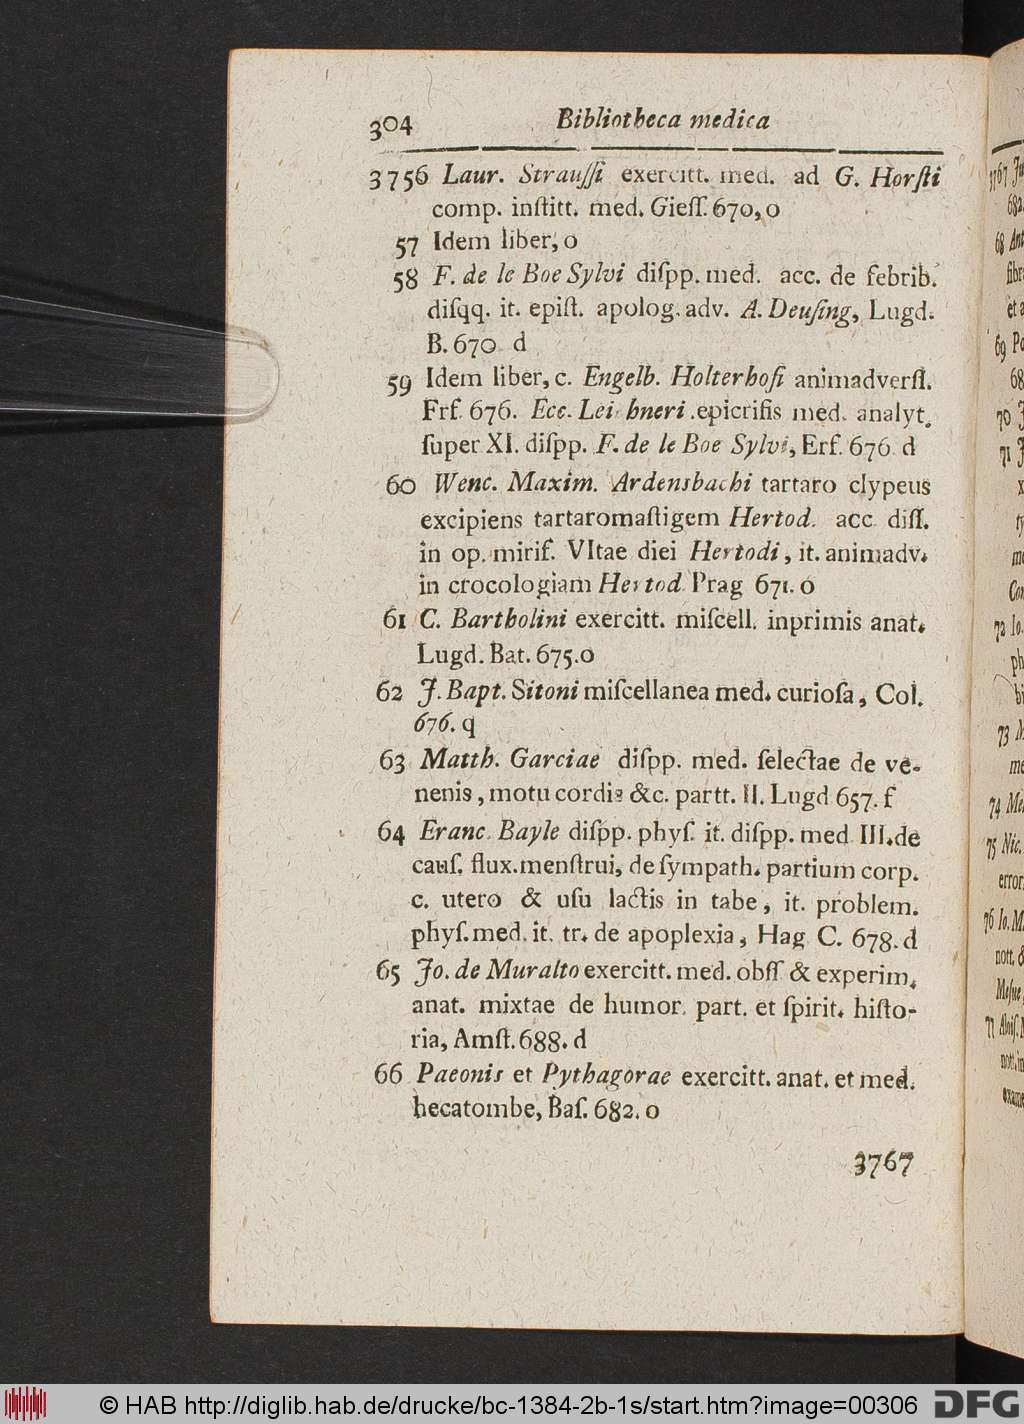 304 Bibliotheca medica
3756 Laur. Strauſſi exercitt. med. ad G. Horſti
comp. inſtitt. med. Gieſſ. 670, o
57 Idem liber, o
58 F. de le Boe Sylvi diſpp. med. acc. de febrib.
diſqq. it. epiſt. apolog. adv. A. Deuſing, Lugd.
B. 670 d
59 Idem liber, c. Engelb. Holterhofi animadverſſ.
Frf. 676. Ecc. Lei hneri .epicriſis med. analyt.
ſuper XI. diſpp. F. de le Boe Sylvi, Erf. 676 d
60 Wenc. Maxim. Ardensbachi tartaro clypeus
excipiens tartaromaſtigem Hertod. acc diſſ.
in op. mirif. VItae diei Hertodi, it. animadv.
in crocologiam Hertod Prag 671. o
61 C. Bartholini exercitt. miſcell. inprimis anat.
Lugd. Bat. 675. o
62 J. Bapt. Sitoni miſcellanea med. curioſa, Col.
676. q
63 Matth. Garciae diſpp. med. ſelectae de ve-
nenis, motu cordis &c. partt. II. Lugd 657. f
64 Eranc. Bayle diſpp. phyſ. it. diſpp. med III. de
cauſ. flux. menſtrui, de ſympath. partium corp.
c. utero & uſu lactis in tabe, it. problem.
phyſ. med. it. tr. de apoplexia, Hag C. 678. d
65 Jo. de Muralto exercitt. med. obſſ & experim.
anat. mixtae de humor. part. et ſpirit. hiſto-
ria, Amſt. 688. d
66 Paeonis et Pythagorae exercitt. anat. et med.
hecatombe, Baſ. 682. o
3767
© HAB http://diglib.hab.de/drucke/bc-1384-2b-1s/start.htm?image=00306 DFG